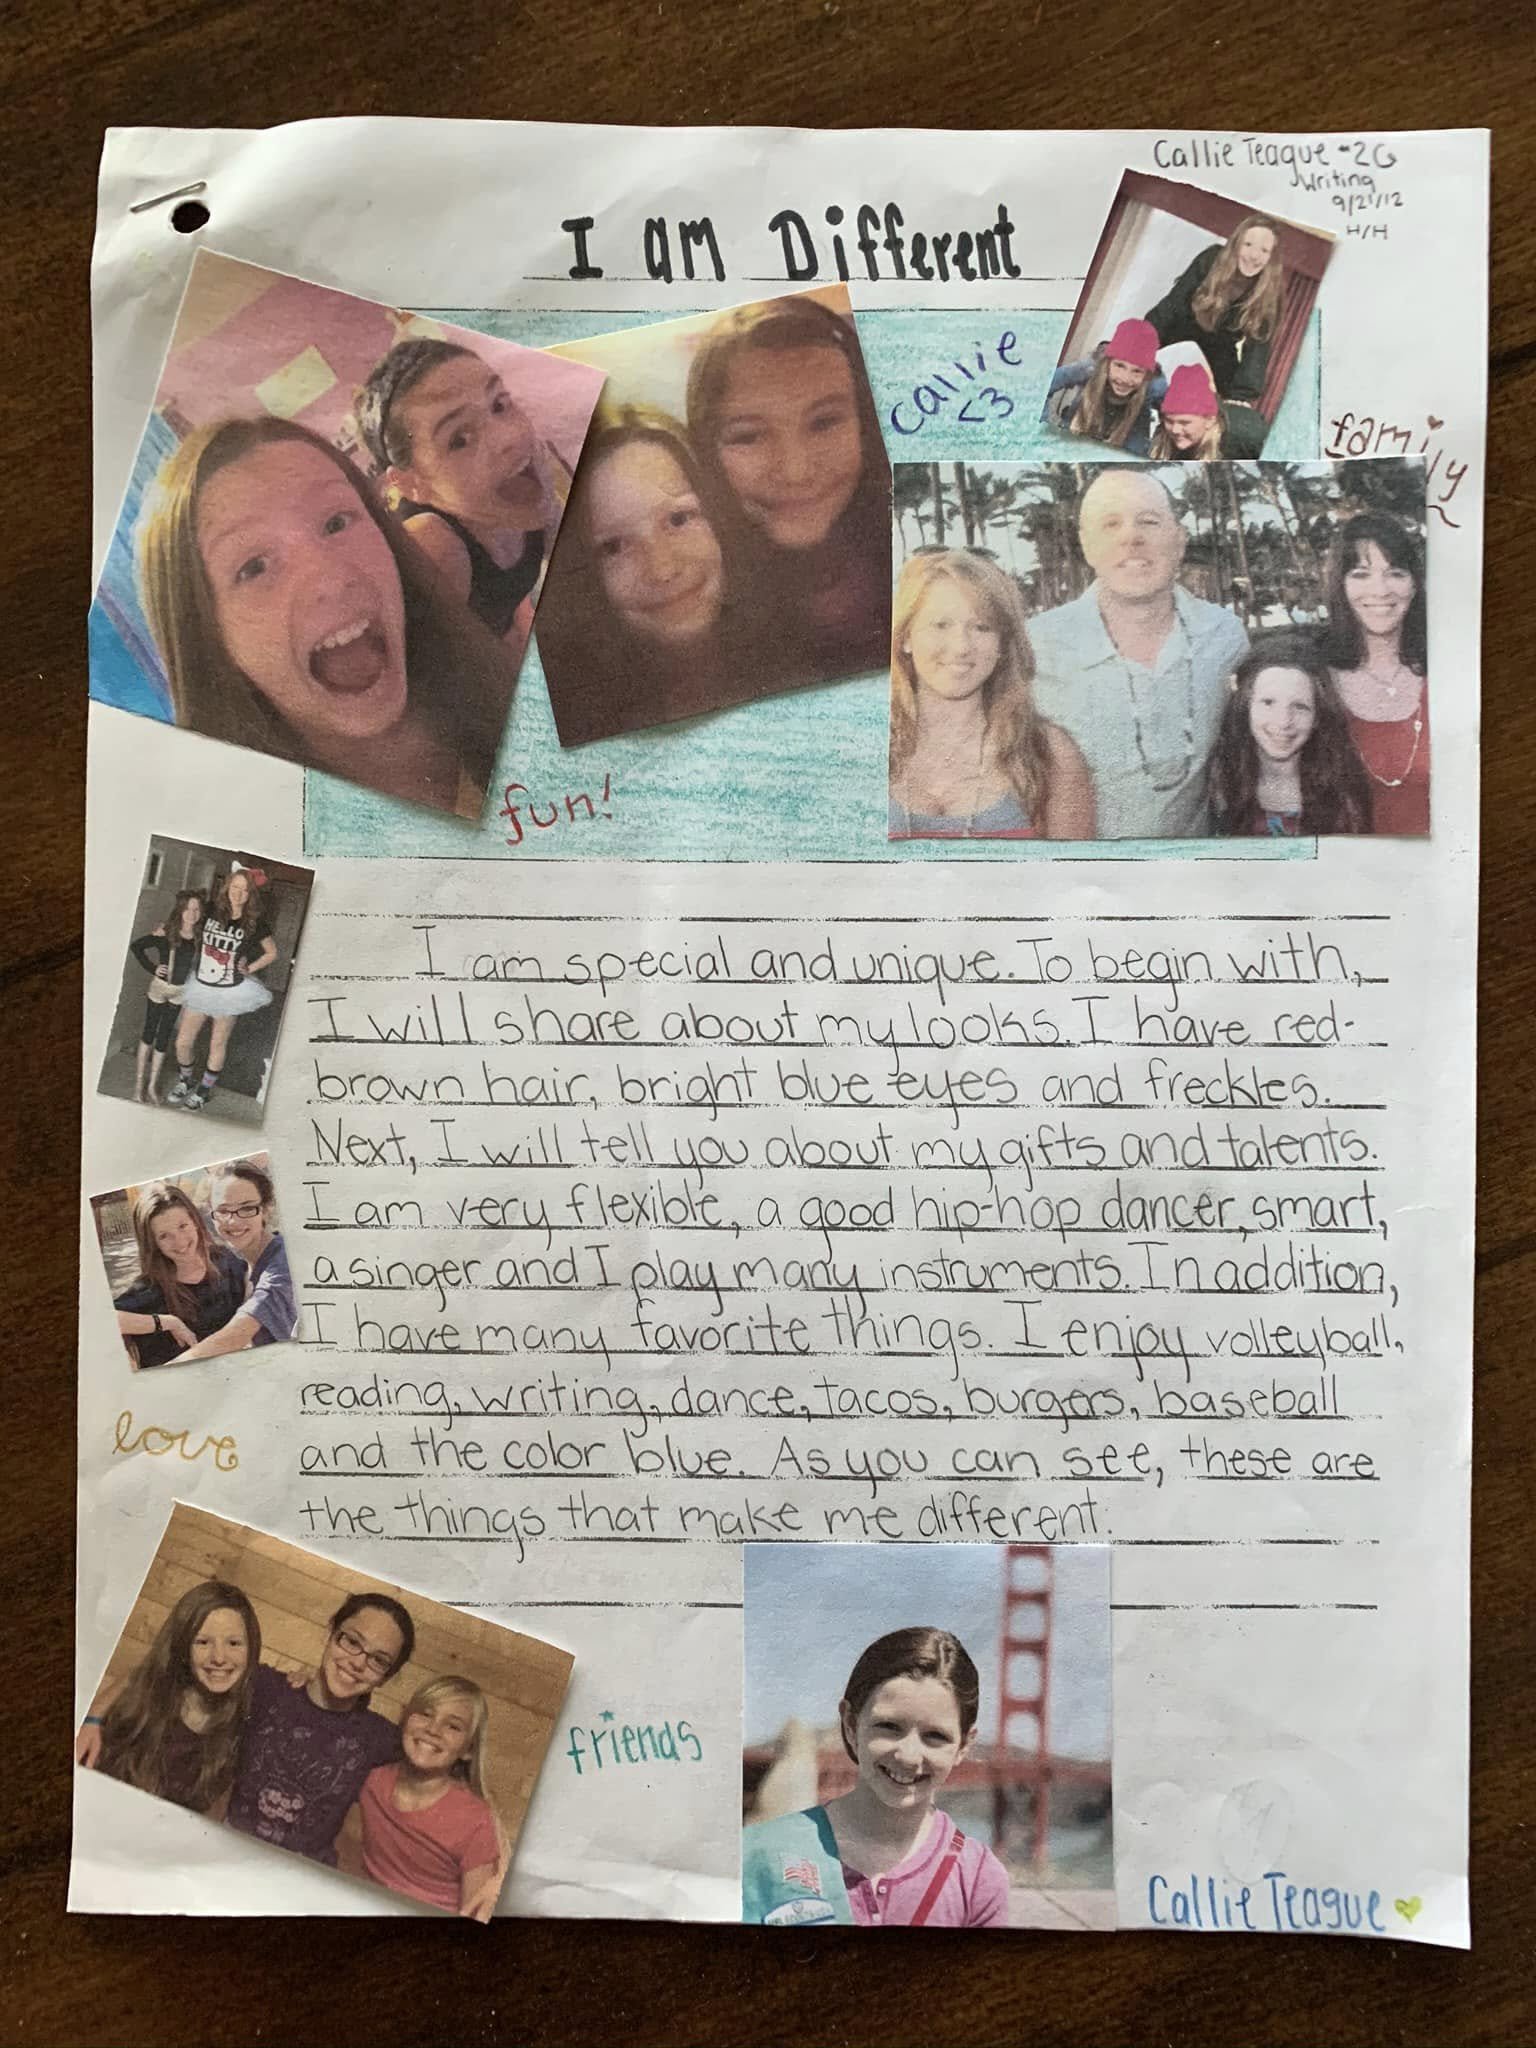 Callie Teague
Writing
9/21/12
H/H
I am Different
Callie
<3
family
fun!
HELLO
KITTY
I am special and unique. To begin with,
I will share about my looks. I have red-
brown hair, bright blue eyes and freckles.
Next, I will tell you about my gifts and talents.
I am very flexible, a good hip-hop dancer, smart,
a singer and I play many instruments. In addition,
I have many favorite things. I enjoy volleyball,
reading, writing, dance, tacos, burgers, baseball
and the color blue. As you can see, these are
the things that make me different.
love
friends
Callie Teague